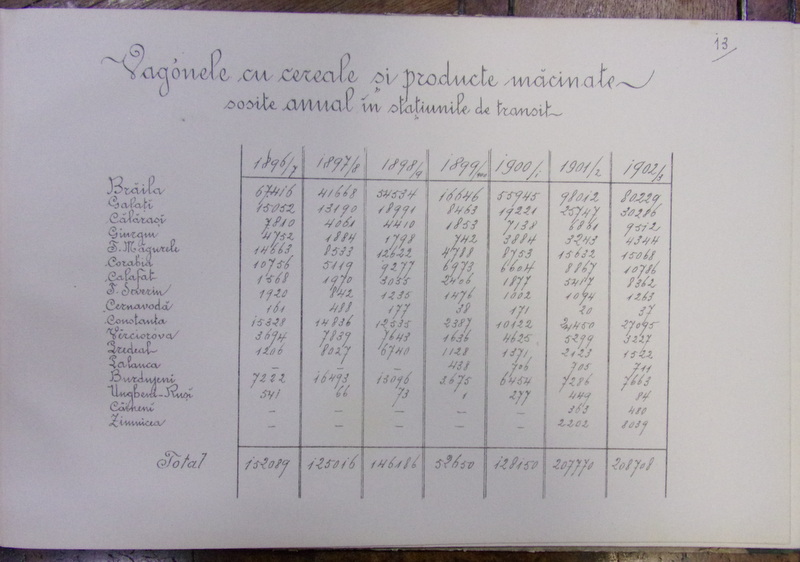 13
Vagónele cu cereale și producte măcinate
sosite anual în stațiunile de transit
1896/7 1897/8 1898/9 1899/900 1900/1 1901/2 1902/3
Brăila 67416 41668 54534 16646 55945 98012 80229
Galați 15052 13190 18991 8463 19221 25747 30286
Călărași 7810 4061 4410 1853 7138 6861 9512
Giurgiu 4752 1884 1798 742 3884 3243 4344
T. Măgurele 14663 8533 12622 4788 8753 15632 15068
Corabia 10756 5119 9277 6973 6604 8867 10786
Calafat 1568 1970 3055 2406 1877 5417 8362
T. Severin 1920 842 1235 1476 1002 1094 1263
Cernavodă 161 488 177 38 171 20 37
Constanța 15328 14836 12535 2387 10122 21450 27095
Vîrciorova 3694 7839 7643 1636 4625 5299 3227
Predeal 1206 8027 6740 1128 1371 2123 1522
Palanca – – – 438 706 705 711
Burdujeni 7222 16493 13096 3675 6454 7286 7663
Ungheni-Ruși 541 66 73 1 277 449 84
Câineni – – – – – 363 480
Zimnicea – – – – – 2202 8039
Total 152089 125016 146186 52650 128150 207770 208708